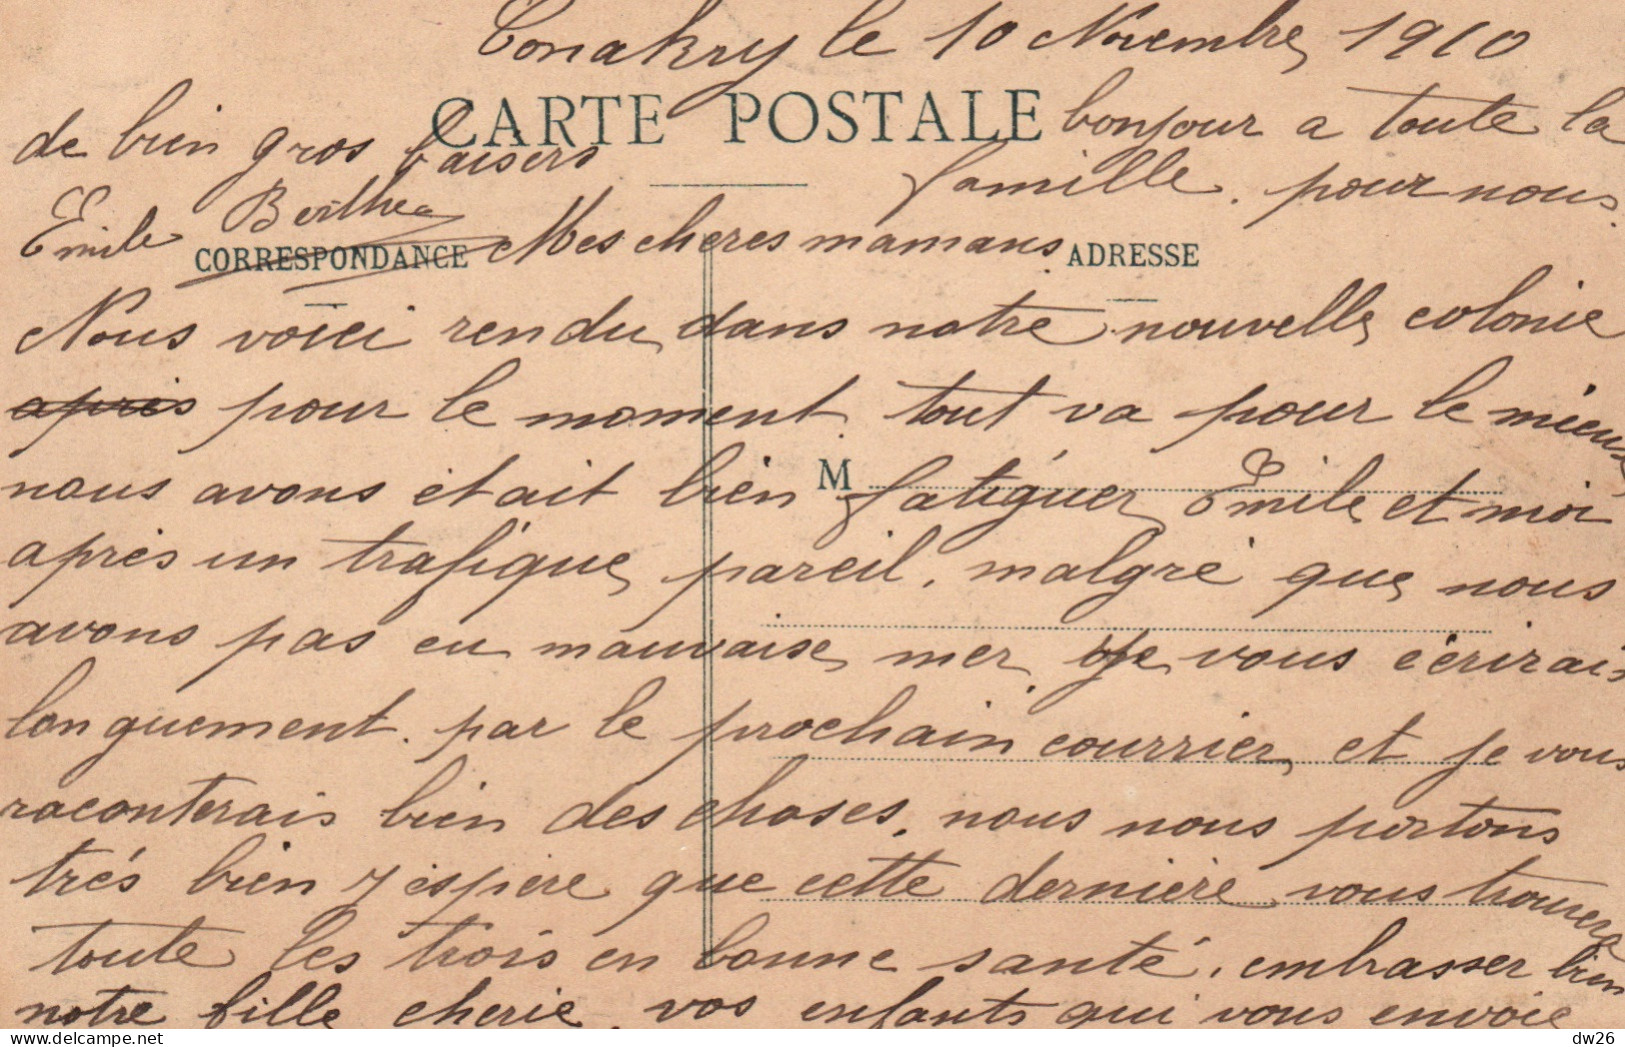 Conakry le 10 Novembre 1910
CARTE POSTALE
bonjour a toute la
famille. pour nous.
de bien gros baisers
Emile Berthe
CORRESPONDANCE
ADRESSE
Mes cheres mamans
Nous voici rendu dans notre nouvelle colonie
après pour le moment tout va pour le mieux
M
nous avons était bien fatiguer Emile et moi
après un trafique pareil. malgré que nous
avons pas eu mauvaise mer je vous écrirais
longuement. par le prochain courrier et je vous
raconterais bien des choses. nous nous portons
trés bien j'éspère que cette dernière vous trouvera
toute les trois en bonne santé. embrasser bien
notre fille cherie. vos enfants qui vous envoie
delcampe.net
dw26